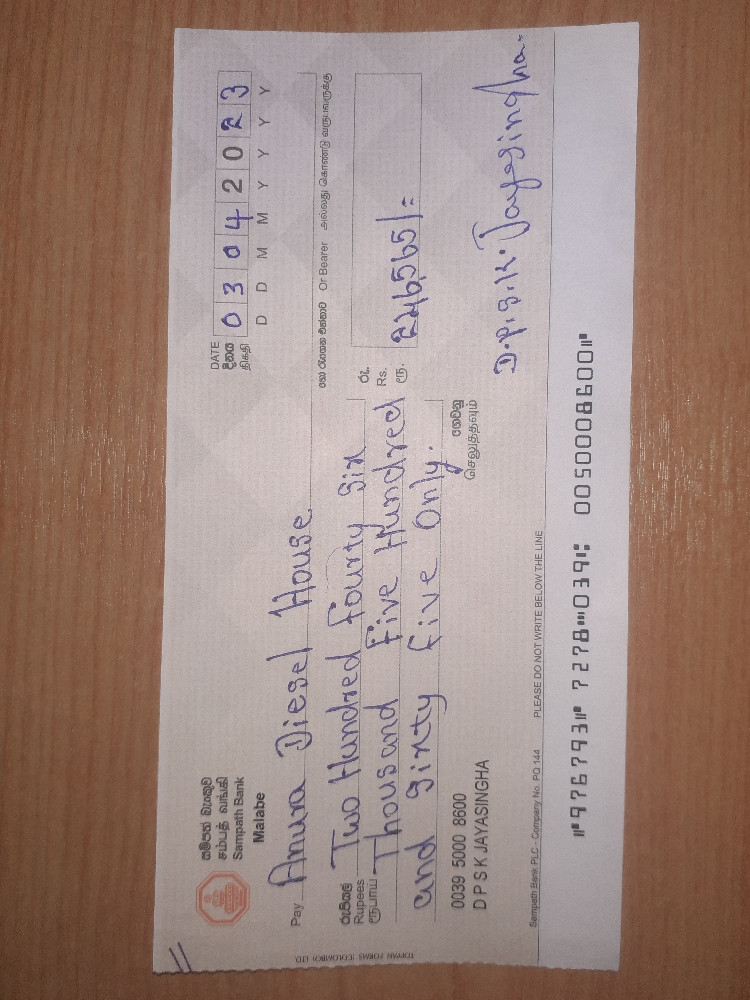 සම්පත් බැංකුව
சம்பத் வங்கி
Sampath Bank
Malabe
DATE
දිනය
திகதி
0 3 0 4 2 0 2 3
D D M M Y Y Y Y
Pay Anura Diesel House
හෝ රැගෙන එන්නාට Or Bearer அல்லது கொண்டு வருபவருக்கு
රුපියල්
Rupees
ரூபாய்
Two Hundred Fourty Six
Thousand Five Hundred
and Sixty Five Only.
රු.
Rs.
ரூ.
246,565/=
ගෙවනු
செலுத்தவும்
0039 5000 8600
D P S K JAYASINGHA
D.P.S.K. Jayasingha.
Sampath Bank PLC - Company No. PQ 144 PLEASE DO NOT WRITE BELOW THE LINE
⑈976793⑈ 7278⑉039⑆ 0050008600⑈
TOPPAN FORMS (COLOMBO) LTD